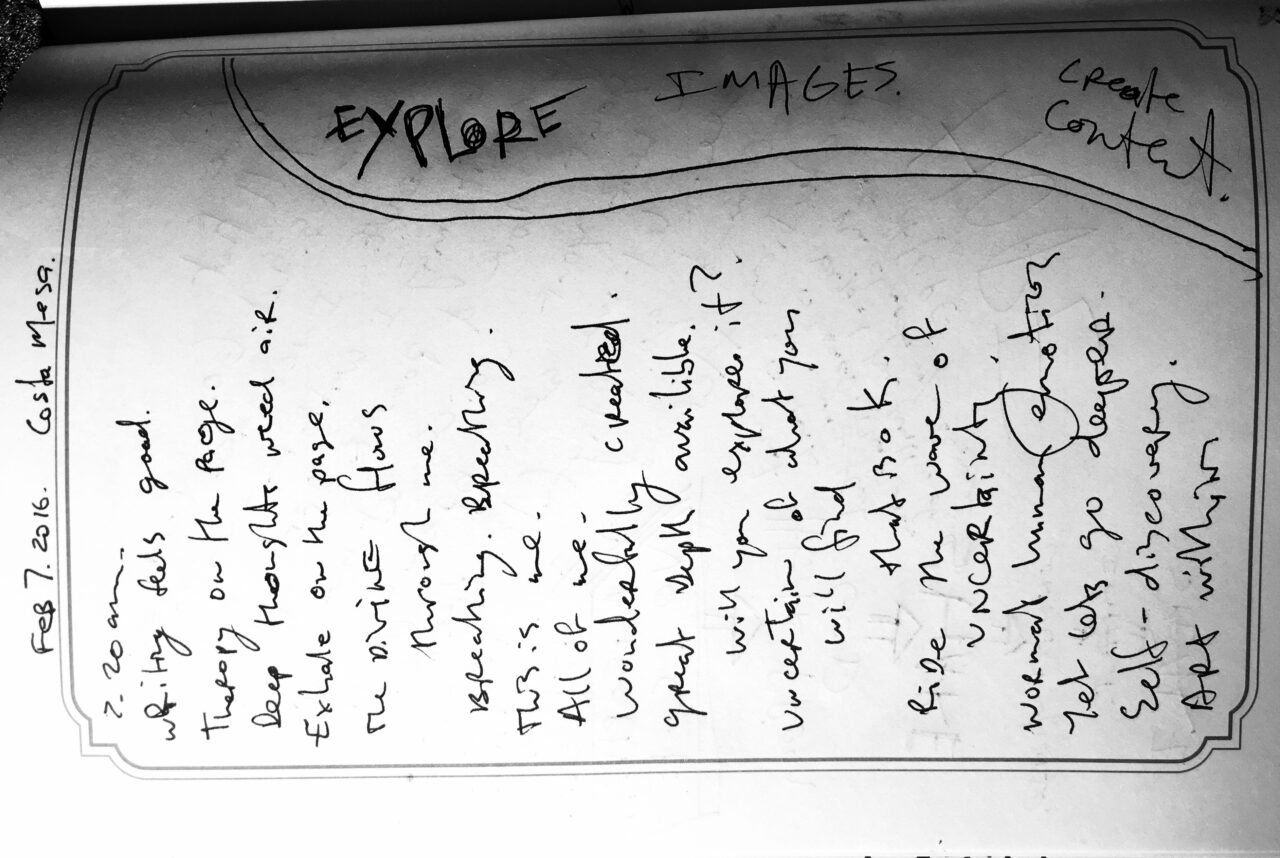 Feb 7. 2016. Costa Mesa.
2. 20am.
writing feels good.
Therapy on the page.
Deep thoughts need air.
Exhale on the page.
The Divine flows
through me.
Breathing. Breathing.
This is me.
All of me.
Wonderfully created.
great depth availible.
will you explore it?
Uncertain of what you
will find
that is ok.
Ride the wave of
uncertainty.
Normal human emotion
Yet lets go deeper.
Self-discovery.
Art within
EXPLORE
IMAGES.
Create
Content.